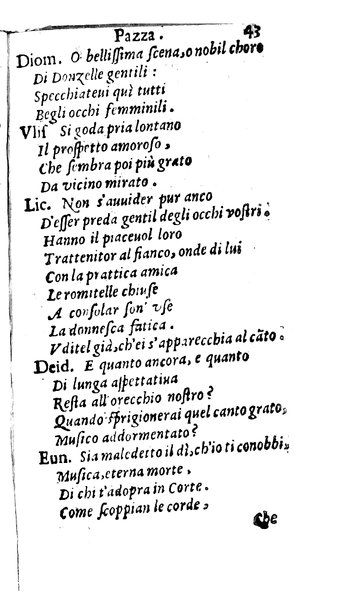 Pazza. 43
Diom. O bellissima scena, o nobil choro
Di Donzelle gentili:
Specchiateui quì tutti
Begli occhi femminili.
Vlis Si goda pria lontano
Il prospetto amoroso,
Che sembra poi più grato
Da vicino mirato.
Lic. Non s'auuider pur anco
D'esser preda gentil degli occhi vostri:
Hanno il piaceuol loro
Trattenitor al fianco, onde di lui
Con la prattica amica
Le romitelle chiuse
A consolar son' vse
La donnesca fatica.
Vditel già, ch'ei s'apparecchia al cãto:
Deid. E quanto ancora, e quanto
Di lunga aspettatiua
Resta all'orecchio nostro?
Quando sprigionerai quel canto grato,
Musico addormentato?
Eun. Sia maledetto il dì, ch'io ti conobbi,
Musica, eterna morte,
Di chi t'adopra in Corte.
Come scoppian le corde,
Che